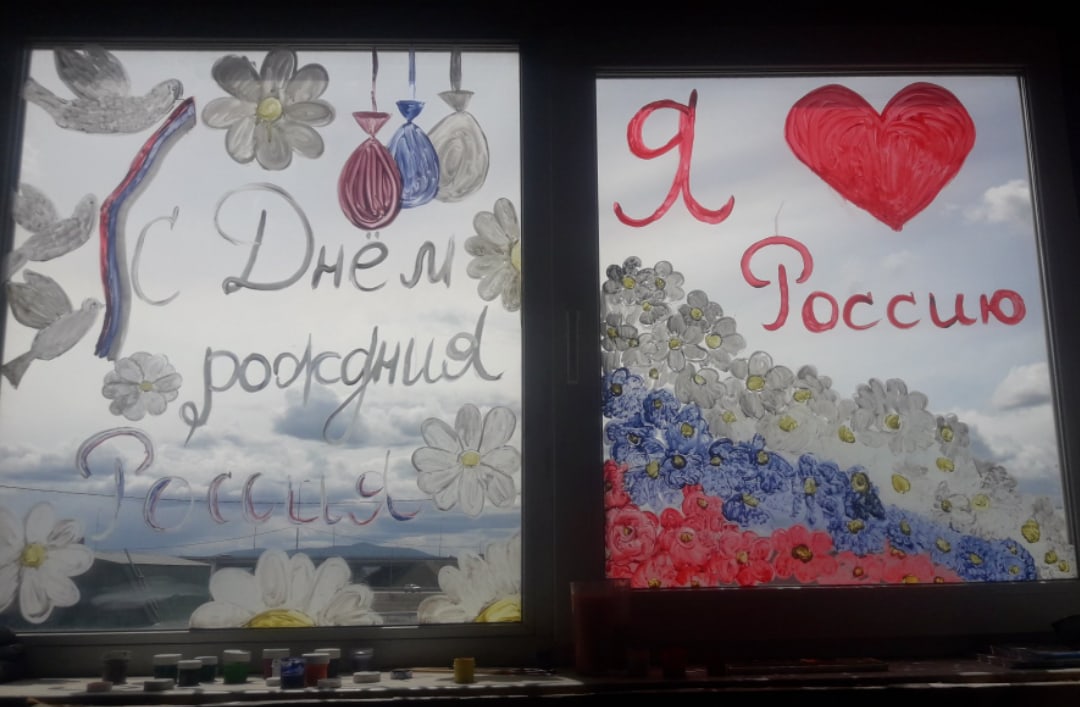 С Днём
рождния
Россия
Я
Россию